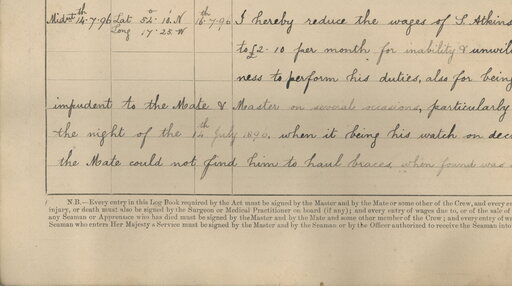 Midnt 14th.7.96 Lat 54° 10.' N 16th.7.96 I hereby reduce the wages of S. Atkins
Long 17.25.W to £2.10 per month for inability & unwil
ness to perform his duties, also for being
impudent to the Mate & Master on several occasions, particularly
the night of the 14th July 1896, when it being his watch on dec
the Mate could not find him to haul braces, when found was
N.B.—Every entry in this Log Book required by the Act must be signed by the Master and by the Mate or some other of the Crew, and every e
injury, or death must also be signed by the Surgeon or Medical Practitioner on board (if any); and every entry of wages due to, or of the sale of
any Seaman or Apprentice who has died must be signed by the Master and by the Mate and some other member of the Crew; and every entry of w
Seaman who enters Her Majesty's Service must be signed by the Master and by the Seaman or by the Officer authorized to receive the Seaman into